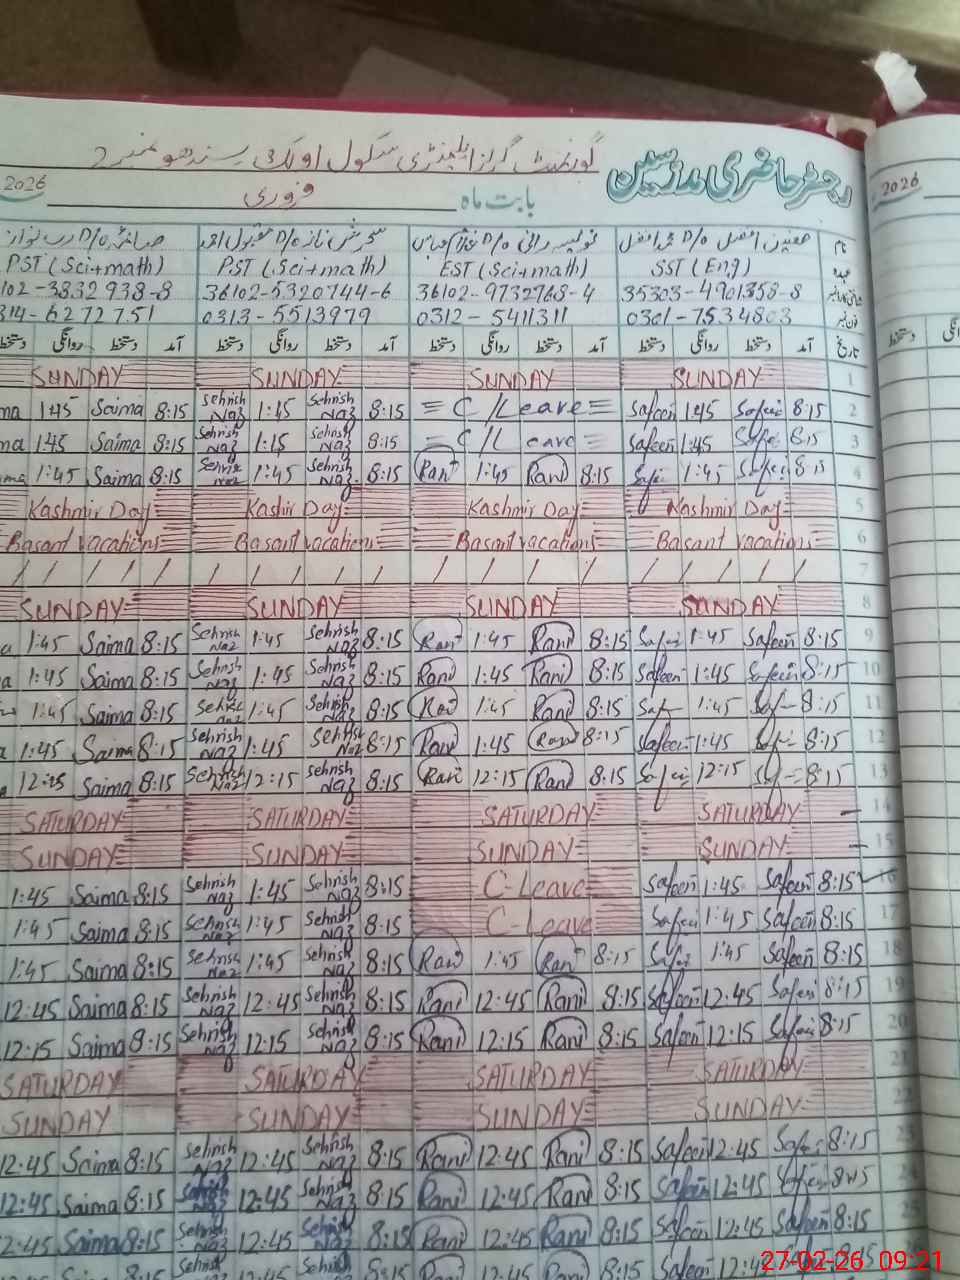 رجسٹر حاضری مدرسین گورنمنٹ گرلز ایلیمنٹری سکول اونکی سندھو نمبر 2
بابت ماہ فروری 2026
2026
نام
PST (Sci+math) PST (Sci+math) EST (Sci+math) SST (Eng) عہدہ
102-3832938-8 36102-5320744-6 36102-9732768-4 35303-4901358-8
314-6272751 0313-5513979 0312-5411311 0301-7534803 فون نمبر
دستخط روانگی دستخط آمد دستخط روانگی دستخط آمد دستخط روانگی دستخط آمد دستخط روانگی دستخط آمد تاریخ
SUNDAY SUNDAY SUNDAY SUNDAY 1
ma 1:45 Saima 8:15 Sehrish Naz 1:45 Sehrish Naz 8:15 = C/Leave = Safeen 1:45 Safeen 8:15 2
ma 1:45 Saima 8:15 Sehrish Naz 1:15 Sehrish Naz 8:15 = C/Leave = Safeen 1:45 Safe 8:15 3
ma 1:45 Saima 8:15 Sehrish Naz 1:45 Sehrish Naz 8:15 Rani 1:45 Rani 8:15 Safe 1:45 Safeen 8:15 4
Kashmir Day Kashir Day Kashmir Day Kashmir Day 5
Basant vacations Basant vacations Basant vacations Basant vacations 6
/ / / / / / / / / / / / / / / / 7
SUNDAY SUNDAY SUNDAY SUNDAY 8
a 1:45 Saima 8:15 Sehrish Naz 1:45 Sehrish Naz 8:15 Rani 1:45 Rani 8:15 Safeen 1:45 Safeen 8:15 9
a 1:45 Saima 8:15 Sehrish Naz 1:45 Sehrish Naz 8:15 Rani 1:45 Rani 8:15 Safeen 1:45 Safeen 8:15 10
1:45 Saima 8:15 Sehrish Naz 1:45 Sehrish Naz 8:15 Rani 1:45 Rani 8:15 Saf 1:45 Saf 8:15 11
a 1:45 Saima 8:15 Sehrish Naz 1:45 Sehrish Naz 8:15 Rani 1:45 Rani 8:15 Safeen 1:45 Safe 8:15 12
12:15 Saima 8:15 Sehrish Naz 12:15 Sehrish Naz 8:15 Rani 12:15 Rani 8:15 Safeen 12:15 Saf 8:15 13
SATURDAY SATURDAY SATURDAY SATURDAY 14
SUNDAY SUNDAY SUNDAY SUNDAY 15
1:45 Saima 8:15 Sehrish Naz 1:45 Sehrish Naz 8:15 C-Leave Safeen 1:45 Safeen 8:15 16
1:45 Saima 8:15 Sehrish Naz 1:45 Sehrish Naz 8:15 C-Leave Safeen 1:45 Safeen 8:15 17
1:45 Saima 8:15 Sehrish Naz 1:45 Sehrish Naz 8:15 Rani 1:45 Rani 8:15 Safe 1:45 Safeen 8:15 18
12:45 Saima 8:15 Sehrish Naz 12:45 Sehrish Naz 8:15 Rani 12:45 Rani 8:15 Safeen 12:45 Safeen 8:15 19
12:15 Saima 8:15 Sehrish Naz 12:15 Sehrish Naz 8:15 Rani 12:15 Rani 8:15 Safeen 12:15 Safeen 8:15 20
SATURDAY SATURDAY SATURDAY SATURDAY 21
SUNDAY SUNDAY SUNDAY SUNDAY 22
12:45 Saima 8:15 Sehrish Naz 12:45 Sehrish Naz 8:15 Rani 12:45 Rani 8:15 Safeen 12:45 Safe 8:15 23
12:45 Saima 8:15 Sehrish Naz 12:45 Sehrish Naz 8:15 Rani 12:45 Rani 8:15 Safeen 12:45 Safeen 8:15 24
2:45 Saima 8:15 Sehrish Naz 12:45 Sehrish Naz 8:15 Rani 12:45 Rani 8:15 Safeen 12:45 Safeen 8:15 25
27-02-26 09:21